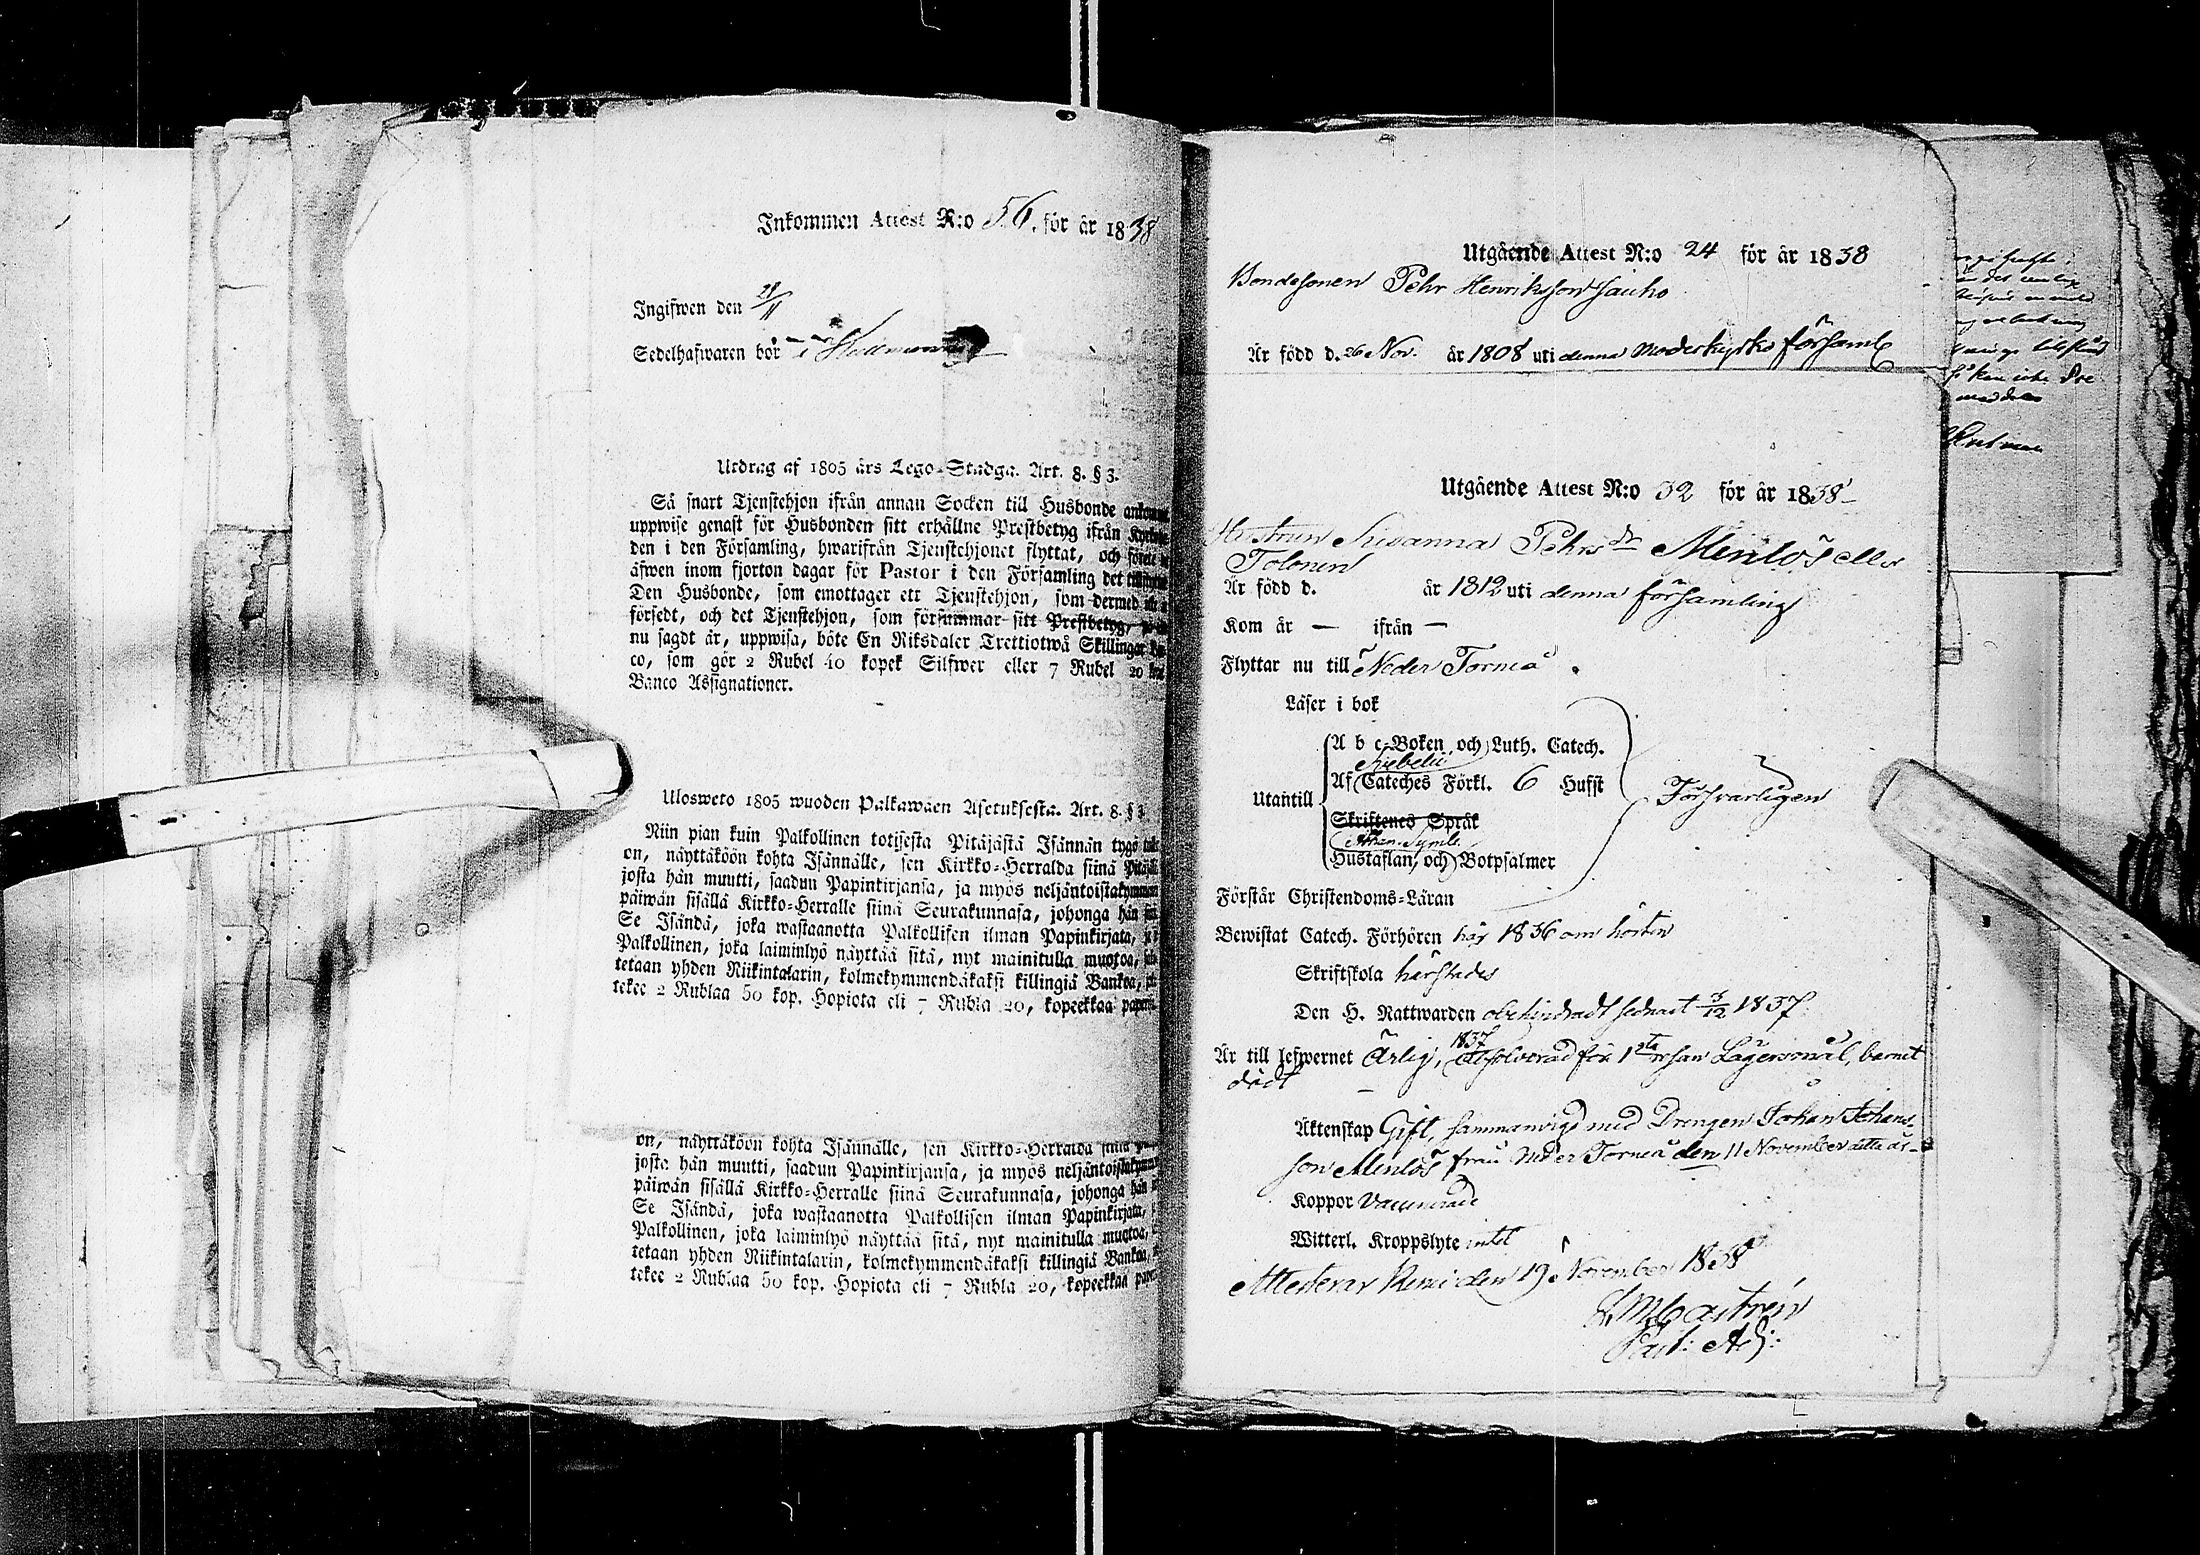 Inkommen Attest N:o 56. för år 1838
Ingifwen den 28/11
Sedelhafwaren bor i
Utdrag af 1805 års Lego-Stadga. Art. 8. § 3.
Så snart Tjenstehjon ifrån annan Socken till Husbonde
uppwise genast för Husbonden sitt erhållne Prestbetyg ifrån
den i den Församling, hwarifrån Tjenstehjonet flyttat, och
äfwen inom fjorton dagar för Pastor i den Församling det
Den Husbonde, som emottager ett Tjenstehjon, som dermed
försedt, och det Tjenstehjon, som försummar sitt Prestbetyg,
nu sagdt är, uppwisa, böte En Riksdaler Trettiotwå Skillingar
co, som gör 2 Rubel 40 kopek Silfwer eller 7 Rubel 20
Banco Assignationer.
Ulosweto 1805 wuoden Palkawäen Asetuksesta. Art. 8. § 3
Niin pian kuin Palkollinen toisesta Pitäjästä Isännän tygö
on, näyttäköön kohta Isännälle, sen Kirkko-Herralda siinä
josta hän muutti, saadun Papinkirjansa, ja myös neljäntoistakymmen
päiwän sisällä Kirkko-Herralle siinä Seurakunnasa, johonga hän
Se Isändä, joka wastaanotta Palkollisen ilman Papinkirjata,
Palkollinen, joka laiminlyö näyttää sitä, nyt mainitulla muotoa,
tetaan yhden Riikintalarin, kolmekymmendäkaksi killingiä Bankoa,
tekee 2 Rublaa 50 kop. Hopiota eli 7 Rubla 20, kopeekkaa
on, näyttäköön kohta Isännälle, sen Kirkko-Herralda siinä
josta hän muutti, saadun Papinkirjansa, ja myös neljäntoistakymmen
päiwän sisällä Kirkko-Herralle siinä Seurakunnasa, johonga hän
Se Isändä, joka wastaanotta Palkollisen ilman Papinkirjata,
Palkollinen, joka laiminlyö näyttää sitä, nyt mainitulla muotoa,
tetaan yhden Riikintalarin, kolmekymmendäkaksi killingiä Bankoa,
tekee 2 Rublaa 50 kop. Hopiota eli 7 Rubla 20, kopeekkaa
Utgående Attest N:o 24 för år 1838
Bondesonen Pehr Henriksson Hauho
Är född d. 26 Nov. år 1808 uti denna Moderkyrko församl
Utgående Attest N:o 32 för år 1838
Hustrun Susanna Pehrs dr Menlös eller
Tolonen
Är född d. år 1812 uti denna församling
Kom år — ifrån —
Flyttar nu till Neder Torneå
Läser i bok
A b c-Boken och Luth. Catech.
Svebelii
Utantill Af Cateches Förkl. 6 Hufst Försvarligen
Skriftenes Språk
Athan. Symb.
Hustaflan, och Botpsalmer
Förstår Christendoms-Läran
Bewistat Catech. Förhören här 1836 om hösten
Skriftskola härstädes
Den H. Nattwarden obehindradt sednast 3/12 1837
Är till lefwernet Ärlig, 1837 absolverad för 1sta resan Lägersmål, barnet
dödt
Äktenskap Gift, sammanvigd med Drengen Johan Johans-
son Menlös från Neder Torneå den 11 November detta år
Koppor Vaccinerad
Witterl. Kroppslyte intet
Attesterar Kemi den 19 November 1838
Castrén
Past: Adj: